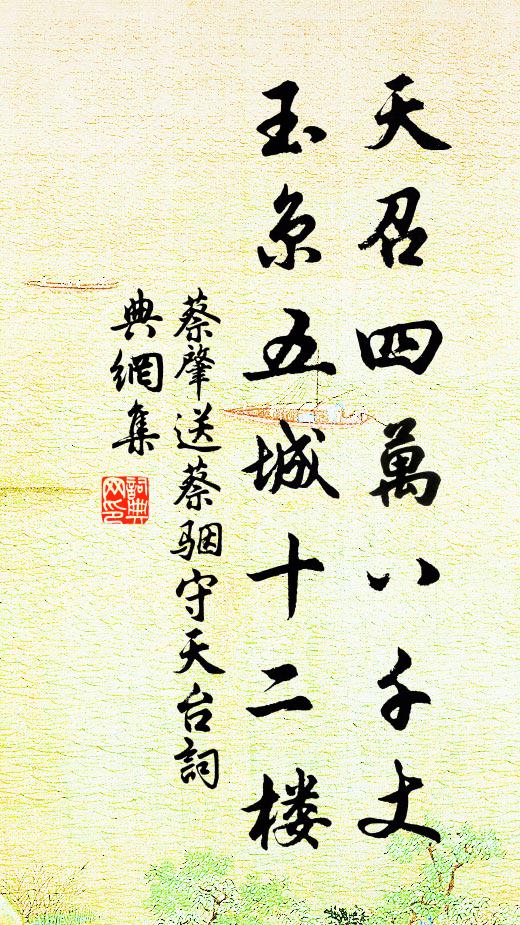 天召四萬八千丈
玉京五城十二楼
蔡肇送蔡駰守天台詞
典網集
詞典
网印